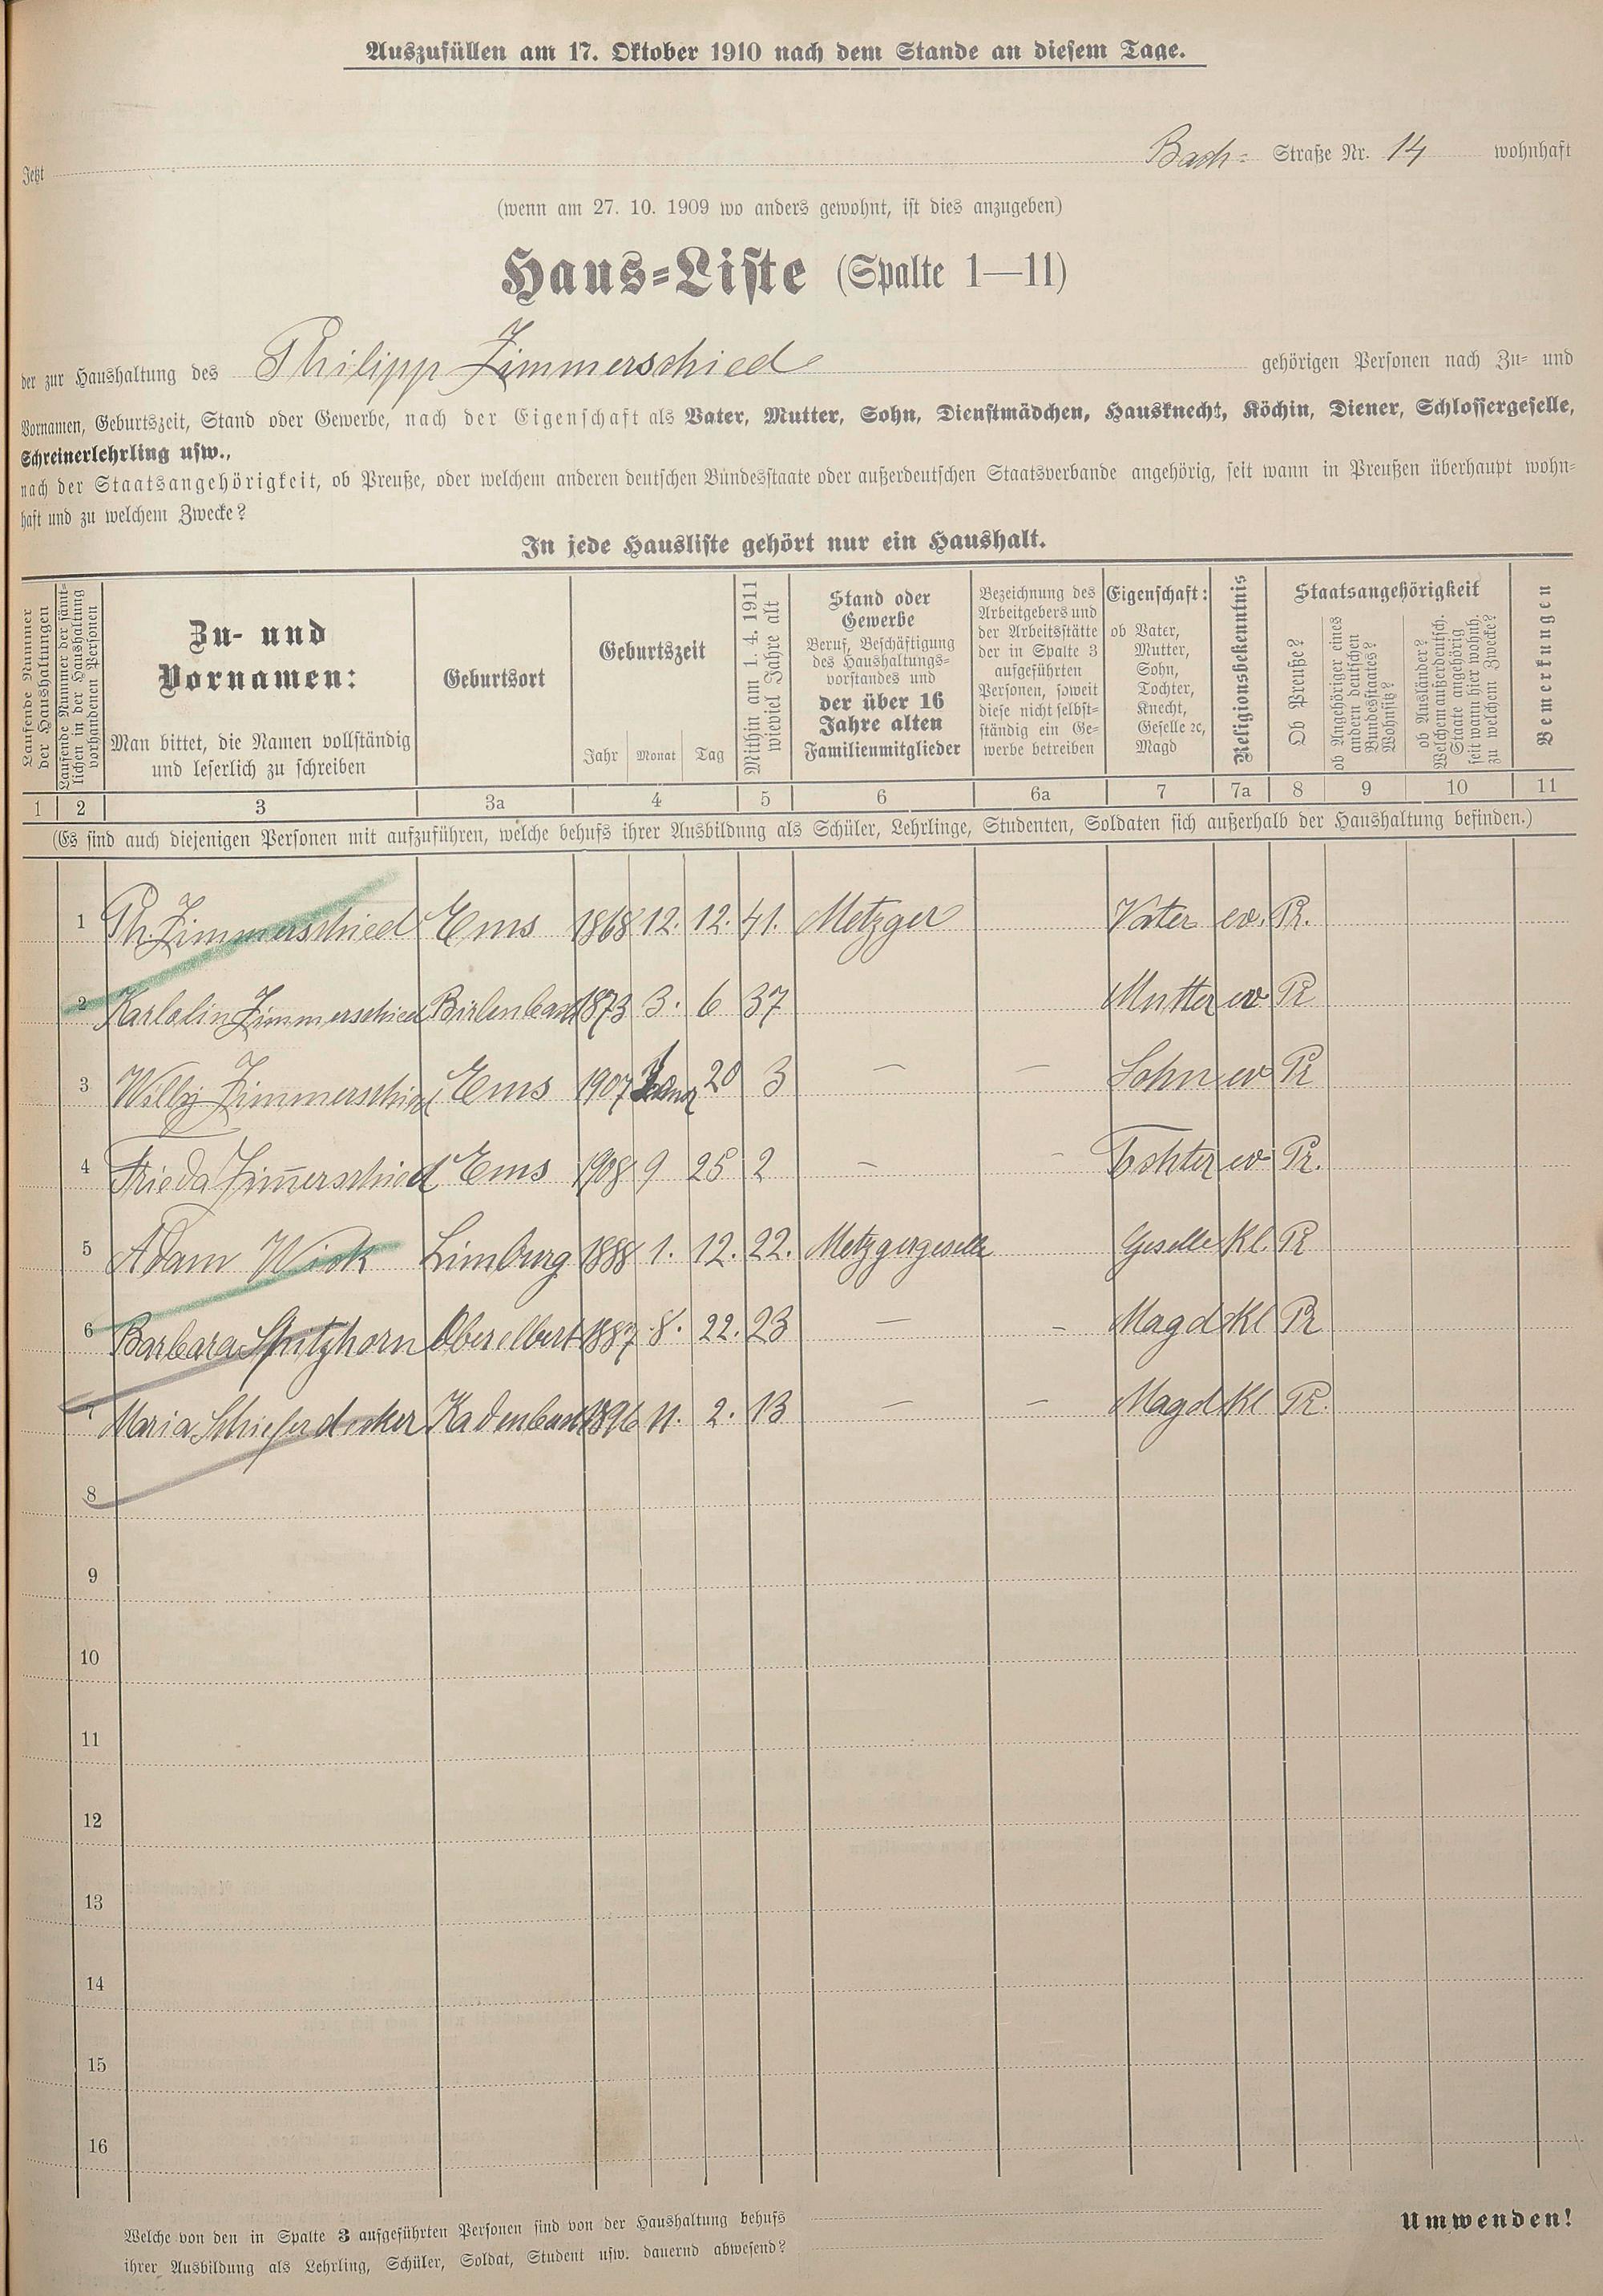 Auszufüllen am 17. Oktober 1910 nach dem Stande an diesem Tage.
Jetzt Bach= Straße Nr. 14 wohnhaft
(wenn am 27. 10. 1909 wo anders gewohnt, ist dies anzugeben)
Haus=Liste (Spalte 1—11)
der zur Haushaltung des Philipp Zimmerschied gehörigen Personen nach Zu= und
Vornamen, Geburtszeit, Stand oder Gewerbe, nach der Eigenschaft als Vater, Mutter, Sohn, Dienstmädchen, Hausknecht, Köchin, Diener, Schlossergeselle,
Schreinerlehrling usw.,
nach der Staatsangehörigkeit, ob Preuße, oder welchem anderen deutschen Bundesstaate oder außerdeutschen Staatsverbande angehörig, seit wann in Preußen überhaupt wohn=
haft und zu welchem Zwecke?
In jede Hausliste gehört nur ein Haushalt.
Laufende Nummer
der Haushaltungen
Laufende Nummer der sämt=
lichen in der Haushaltung
vorhandenen Personen
Zu- und
Vornamen:
Man bittet, die Namen vollständig
und leserlich zu schreiben
Geburtsort
Geburtszeit
Jahr Monat Tag
Mithin am 1. 4. 1911
wieviel Jahre alt
Stand oder
Gewerbe
Beruf, Beschäftigung
des Haushaltungs=
vorstandes und
der über 16
Jahre alten
Familienmitglieder
Bezeichnung des
Arbeitgebers und
der Arbeitsstätte
der in Spalte 3
aufgeführten
Personen, soweit
diese nicht selbst=
ständig ein Ge=
werbe betreiben
Eigenschaft:
ob Vater,
Mutter,
Sohn,
Tochter,
Knecht,
Geselle ꝛc,
Magd
Religionsbekenntnis
Staatsangehörigkeit
Ob Preuße?
ob Angehöriger eines
andern deutschen
Bundesstaates?
Wohnsitz?
ob Ausländer?
Welchem außerdeutsch.
Staate angehörig
seit wann hier wohnh.
zu welchem Zwecke?
Bemerkungen
1 2 3 3a 4 5 6 6a 7 7a 8 9 10 11
(Es sind auch diejenigen Personen mit aufzuführen, welche behufs ihrer Ausbildung als Schüler, Lehrlinge, Studenten, Soldaten sich außerhalb der Haushaltung befinden.)
1 Ph. Zimmerschied Ems 1868 12. 12. 41. Metzger Vater ev. Pr.
2 Karlolin Zimmerschied Birlenbach 1873 3. 6 37 Mutter ev Pr
3 Willy Zimmerschied Ems 1907 20 3 — — Sohn ev Pr
4 Frieda Zim̄erschied Ems 1908 9 25 2 — - Tochter ev Pr.
5 Adam Limburg 1888 1. 12. 22. Metzgergeselle Geselle Kl. Pr
6 Barbara Spitzhorn Oberelbert 1887 8. 22. 23 — - Magd Kl Pr
7 Maria Schieferdecker Kadenbach 1896 11. 2. 13 — — Magd Kl Pr.
8
9
10
11
12
13
14
15
16
Welche von den in Spalte 3 aufgeführten Personen sind von der Haushaltung behufs
ihrer Ausbildung als Lehrling, Schüler, Soldat, Student usw. dauernd abwesend?
Umwenden!